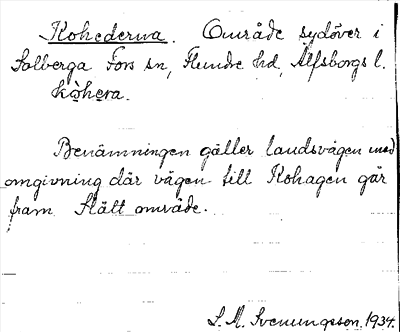 Kohederna. Område sydöver i
Solberga Fors sn, Flundre hd, Älfsborgs l.
kòhera.
Benämningen gäller landsvägen med
omgivning där vägen till Kohagen går
fram. Slätt område.
S. M. Svenungsson. 1934.